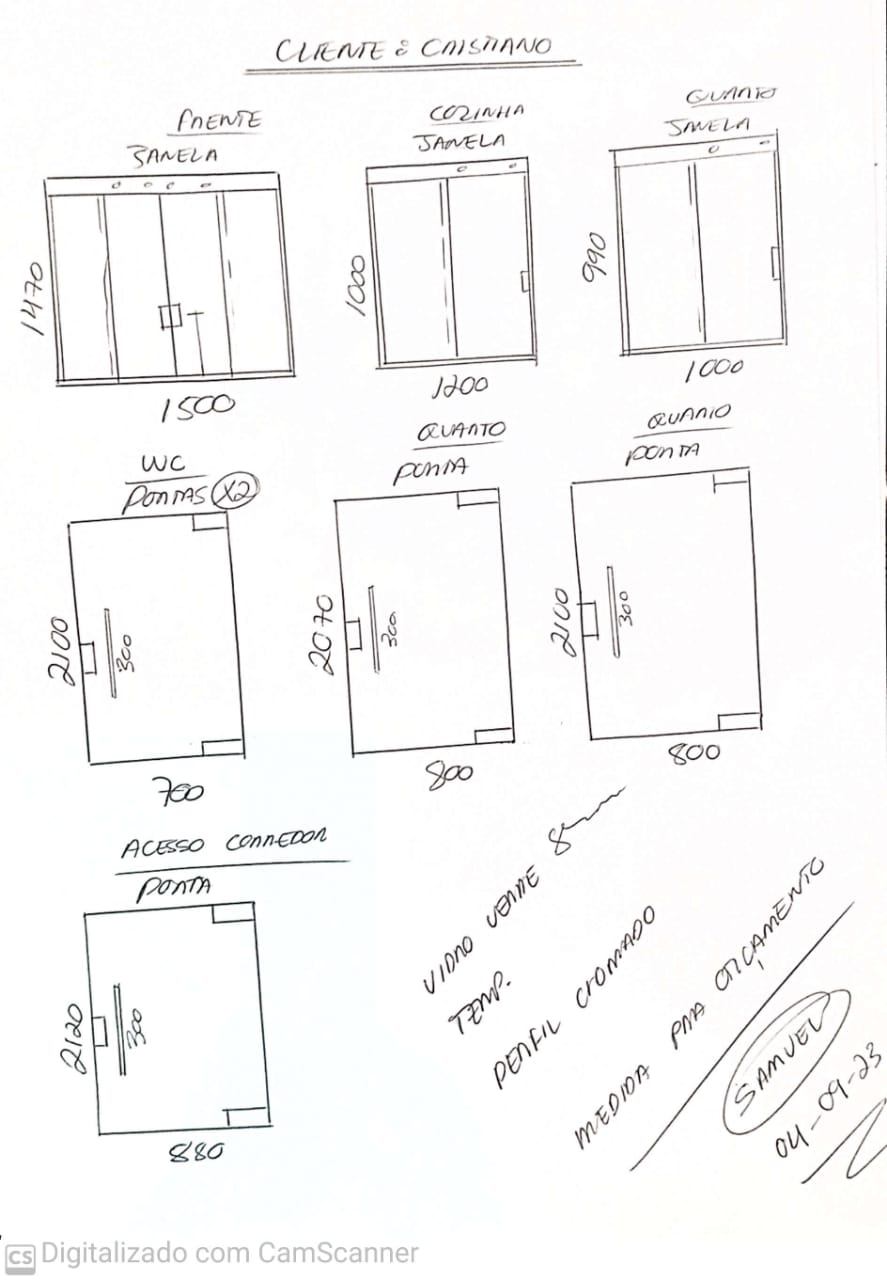 CLIENTE : CRISTIANO
FRENTE
JANELA
1470
1500
COZINHA
JANELA
1000
1200
QUARTO
JANELA
990
1000
WC
PORTAS X2
2100
300
700
QUARTO
PORTA
2070
300
800
QUARTO
PORTA
2100
300
800
ACESSO CORREDOR
PORTA
2120
300
880
VIDRO VERDE 8mm
TEMP.
PERFIL CROMADO
MEDIDA PRA ORÇAMENTO
SAMUEL
04-09-23
CS Digitalizado com CamScanner